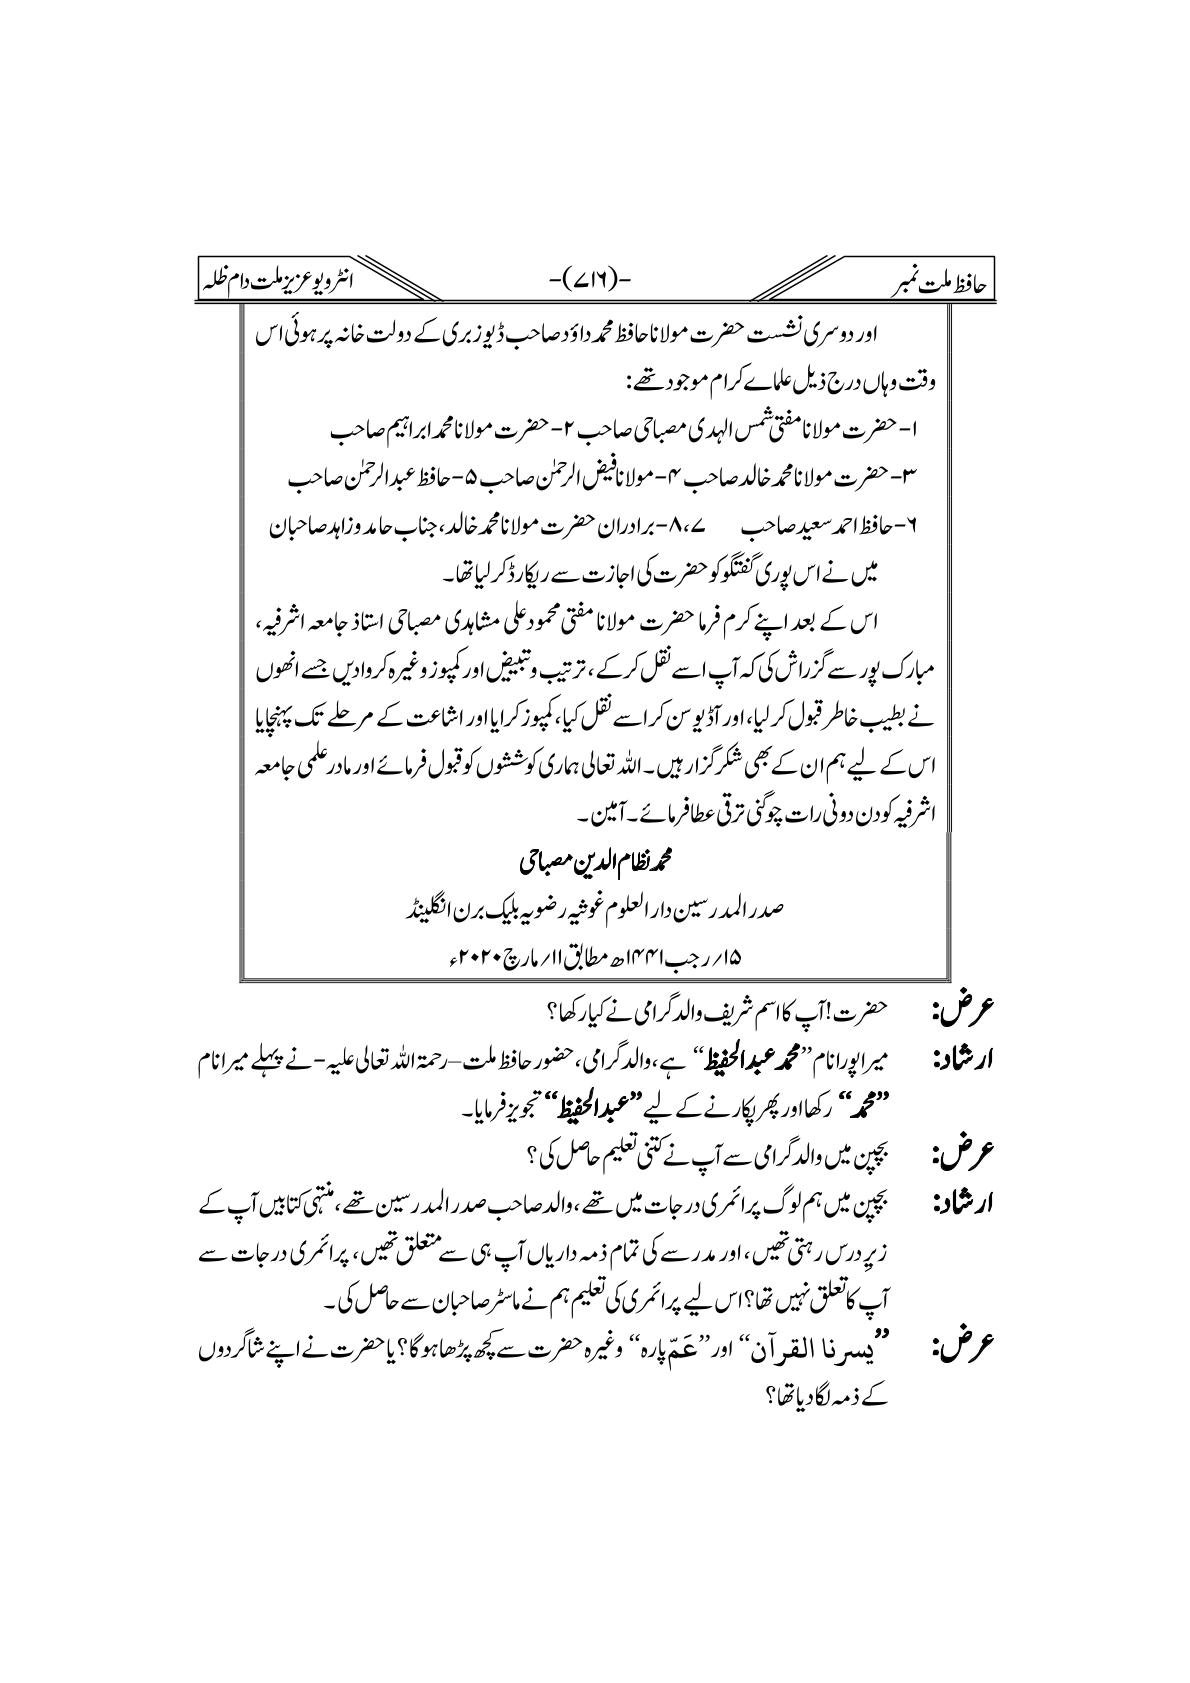 حافظ ملت نمبر
-(۷۱۶)-
انٹرویو عزیز ملت دام ظلہ
اور دوسری نشست حضرت مولانا حافظ محمد داؤد صاحب ڈیوزبری کے دولت خانہ پر ہوئی اس
وقت وہاں درج ذیل علماے کرام موجود تھے:
۱- حضرت مولانا مفتی شمس الہدی مصباحی صاحب ۲- حضرت مولانا محمد ابراہیم صاحب
۳- حضرت مولانا محمد خالد صاحب ۴- مولانا فیض الرحمٰن صاحب ۵- حافظ عبد الرحمٰن صاحب
۶- حافظ احمد سعید صاحب ۸،۷- برادران حضرت مولانا محمد خالد، جناب حامد و زاہد صاحبان
میں نے اس پوری گفتگو کو حضرت کی اجازت سے ریکارڈ کر لیا تھا۔
اس کے بعد اپنے کرم فرما حضرت مولانا مفتی محمود علی مشاہدی مصباحی استاذ جامعہ اشرفیہ،
مبارک پور سے گزراش کی کہ آپ اسے نقل کر کے، ترتیب و تبییض اور کمپوز وغیرہ کروا دیں جسے انھوں
نے بطیب خاطر قبول کر لیا، اور آڈیو سن کر اسے نقل کیا، کمپوز کرایا اور اشاعت کے مرحلے تک پہنچایا
اس کے لیے ہم ان کے بھی شکر گزار ہیں۔ اللہ تعالی ہماری کوششوں کو قبول فرمائے اور مادر علمی جامعہ
اشرفیہ کو دن دونی رات چوگنی ترقی عطا فرمائے۔ آمین۔
محمد نظام الدین مصباحی
صدر المدرسین دار العلوم غوثیہ رضویہ بلیک برن انگلینڈ
۱۵؍ رجب ۱۴۴۱ھ مطابق ۱۱؍ مارچ ۲۰۲۰ء
عرض: حضرت! آپ کا اسم شریف والد گرامی نے کیا رکھا؟
ارشاد: میرا پورا نام ”محمد عبد الحفیظ“ ہے، والد گرامی، حضور حافظ ملت –رحمۃ اللہ تعالی علیہ– نے پہلے میرا نام
”محمد“ رکھا اور پھر پکارنے کے لیے ”عبد الحفیظ“ تجویز فرمایا۔
عرض: بچپن میں والد گرامی سے آپ نے کتنی تعلیم حاصل کی؟
ارشاد: بچپن میں ہم لوگ پرائمری درجات میں تھے، والد صاحب صدر المدرسین تھے، منتہی کتابیں آپ کے
زیرِ درس رہتی تھیں، اور مدرسے کی تمام ذمہ داریاں آپ ہی سے متعلق تھیں، پرائمری درجات سے
آپ کا تعلق نہیں تھا؟ اس لیے پرائمری کی تعلیم ہم نے ماسٹر صاحبان سے حاصل کی۔
عرض: ”یسرنا القرآن“ اور ”عَمّ پارہ“ وغیرہ حضرت سے کچھ پڑھا ہوگا؟ یا حضرت نے اپنے شاگردوں
کے ذمہ لگا دیا تھا؟